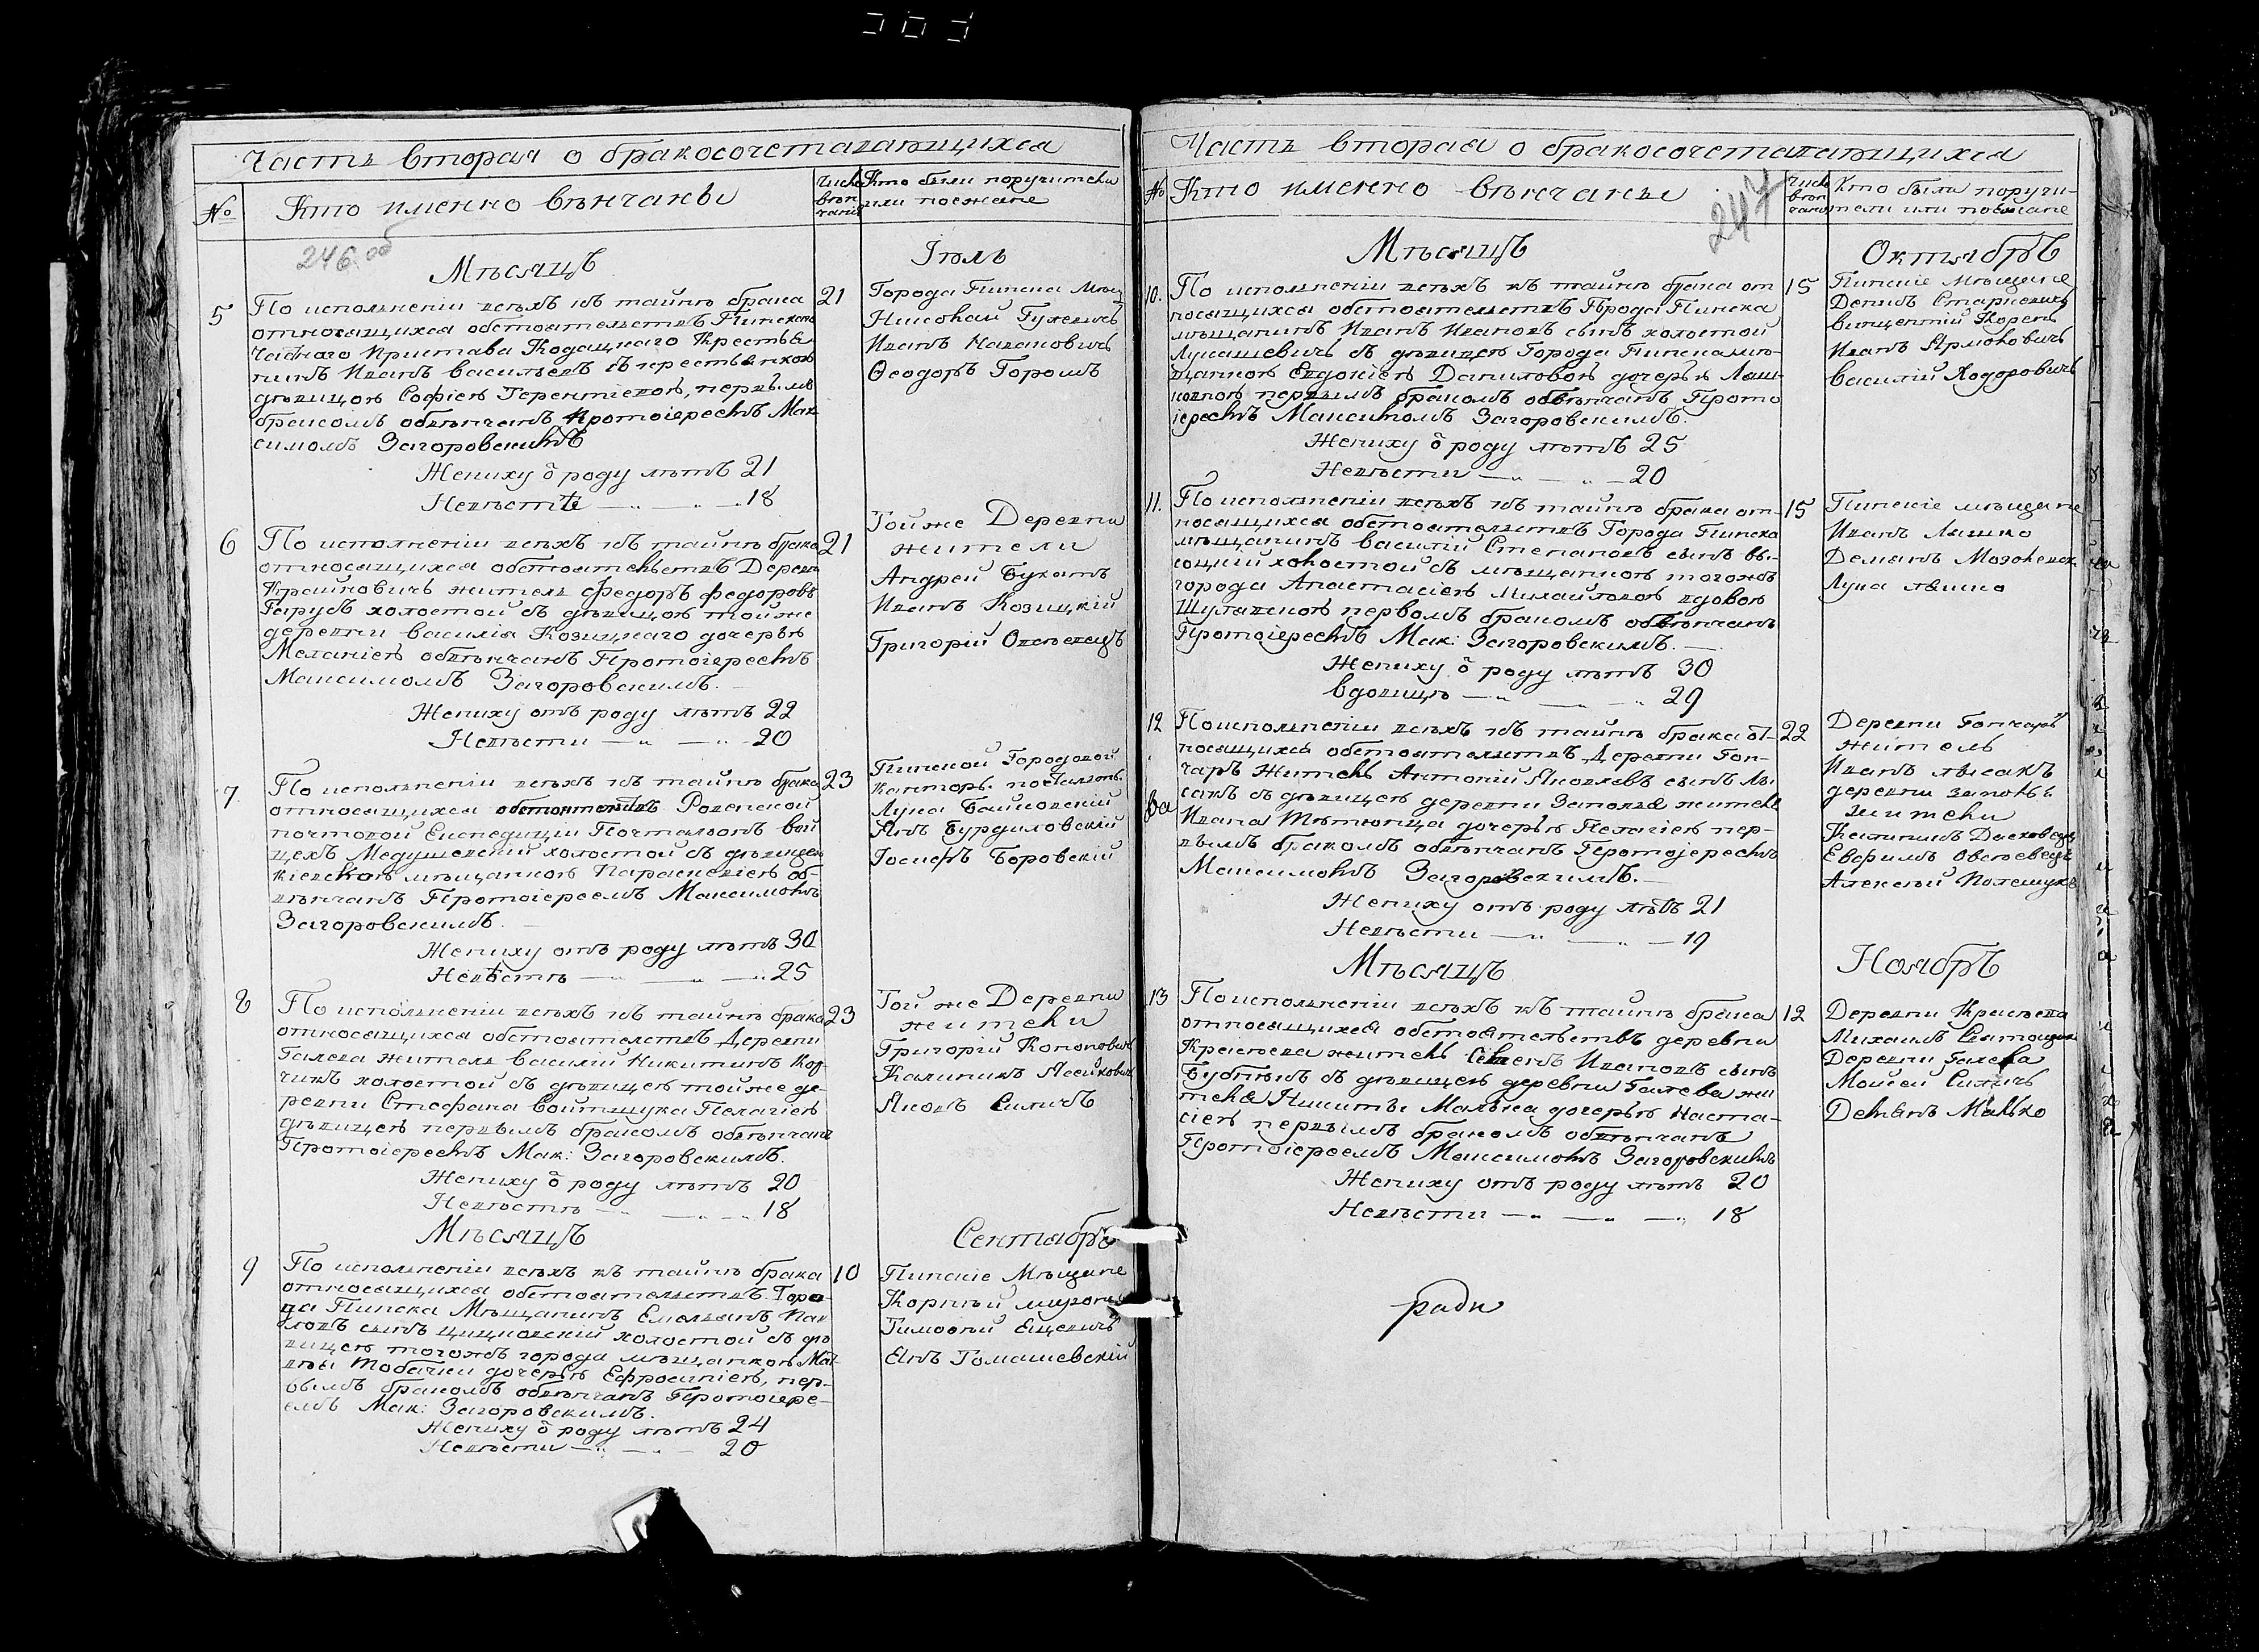 Часть вторая о бракосочетавающихся
№
Кто именно вѣнчаны
Числ вѣнчанія
Кто были поручители
или поезжане
246 об
Мѣсяцъ
Іюль
5
По исполненіи всѣхъ къ тайнѣ брака
относящихся обстоятельствъ Пинскаго
Частного Пристава
Иванъ Васильевъ съ
дѣвицою Софіею Терентіевою, первымъ
бракомъ обвѣнчанъ Протоіереемъ Мак
симомъ Загоровскимъ
Жениху ѿ роду лѣтъ 21
Невѣстѣ 18
21
Города Пинска Мѣщ
Николай Гужевичъ
Иванъ
Ѳеодоръ Горошъ
6
По исполненіи всѣхъ къ тайнѣ брака
относящихся обстоятельствъ Деревни
Крайновичъ житель Федоръ Федоровъ
Гарусъ холостой съ дѣвицою тойже
деревни Василія Козицкаго дочерью
Меланіею обвѣнчанъ Протоіереемъ
Максимомъ Загоровскимъ.
Жениху отъ роду лѣтъ 22
Невѣсти 20
21
Тойже Деревни
жители
Андрей Букатъ
Иванъ Козицкій
Григорій Овсѣевецъ
7
По исполненіи всѣхъ къ тайнѣ брака
относящихся обстоятельствъ Ровенской
почтовой Експедиціи Почталіонъ Вой
цехъ Медушевскій холостой съ дѣвицею
Кіевскою мѣщанкою Параскевіею об-
вѣнчанъ Протоіереемъ Максимомъ
Загоровскимъ.
Жениху отъ роду лѣтъ 30
Невѣстѣ 25
23
Пинской Городовой
Канторы почталіонъ
Лука Байковскій
Янъ Бурдиловскій
Іосифъ Боровскій
8
По исполненіи всѣхъ къ тайнѣ брака
относящихся обстоятелствъ Деревни
Галева житель Василій Никитинъ Кор
чикъ холостой съ дѣвицею тойже де
ревни Стефана Войтщука Пелагіею
дѣвицею первымъ бракомъ обвѣнчанъ
Протоіереемъ Мак: Загоровскимъ.
Жениху ѿ роду лѣтъ 20
Невѣстѣ 18
23
Той же Деревни
жители
Григорій Кононовичъ
Калиникъ
Яковъ Силичъ
Мѣсяцъ
Сентябрь
9
По исполненіи всѣхъ къ тайнѣ брака
относящихся обстоятельствъ Горо-
да Пинска Мѣщанинъ Емельянъ Пав
ловъ сынъ холостой съ дѣ
вицею тогожъ города мѣщанкою
дочерью Ефросиніею, пер-
вымъ бракомъ обвѣнчанъ Протоіере-
емъ Мак: Загоровскимъ.
Жениху ѿ роду лѣтъ 24
Невѣсти 20
10
Пинскіе Мѣщане
Корнѣй
Тимофѣй Ецевичъ
Янъ Томашевскій
Часть вторая о бракосочетавающихся
№
Кто именно вѣнчаны
247
Числ вѣнчанія
Кто были поручи-
тели или поезжане
Мѣсяцъ
Октябрь
10.
По исполненіи всѣхъ къ тайнѣ брака от
носящихся обстоятельствъ Города Пинска
мѣщанинъ Иванъ Ивановъ сынъ холостой
Лукашевичъ съ дѣвицею Города Пинска мѣ-
щанкою Евдокіею Даниловою дочерью
первымъ бракомъ обвѣнчанъ Прото
іереемъ Максимомъ Загоровскимъ.
Жениху ѿ роду лѣтъ 25
Невѣсти 20
15
Пинскіе Мѣщане
Денисъ
Винцентій Корень
Иванъ Ярмоловичъ
Василій Ходоровичъ
11.
По исполненіи всѣхъ къ тайнѣ брака от-
носящихся обстоятельствъ Города Пинска
мѣщанинъ Василій Степановъ сынъ Вы-
соцкій холостой съ мѣщанкою тогожъ
города Анастасіею Михайловою вдовою
первымъ бракомъ обвѣнчанъ
Протоіереемъ Мак: Загоровскимъ.
Жениху ѿ роду лѣтъ 30
Вдовицѣ 29
15
Пинскіе мѣщане
Иванъ Ляшко
Демьянъ
Лука Ляшко
12
По исполненіи всѣхъ къ тайнѣ брака от-
носящихся обстоятельствъ Деревни Гон-
чаръ Житель Антоній Яковлевъ сынъ Лы
сакъ съ дѣвицею деревни Заполья жителя
Ивана дочерью Пелагіею пер-
вымъ бракомъ обвѣнчанъ Протоіереемъ
Максимомъ Загоровскимъ.
Жениху отъ роду лѣтъ 21
Невѣсти 19
22
Деревни Гончаръ
житель
Иванъ Лысакъ
деревни Заполья
жители
Евфимъ Овсѣевецъ
Алексѣй Полещукъ
Мѣсяцъ
Ноябрь
13
По исполненіи всѣхъ къ тайнѣ брака
относящихся обстоятельствъ деревни
Красѣева житель Семенъ Ивановъ сынъ
съ дѣвицею деревни Галева жи
теля Никиты Малька дочерью Наста-
сіею первымъ бракомъ обвѣнчанъ
Протоіереемъ Максимомъ Загоровскимъ
Жениху отъ роду лѣтъ 20
Невѣсти 18
12
Деревни Красѣева
Михаилъ
Деревни Галева
Мойсей Силичъ
Демьянъ Малько